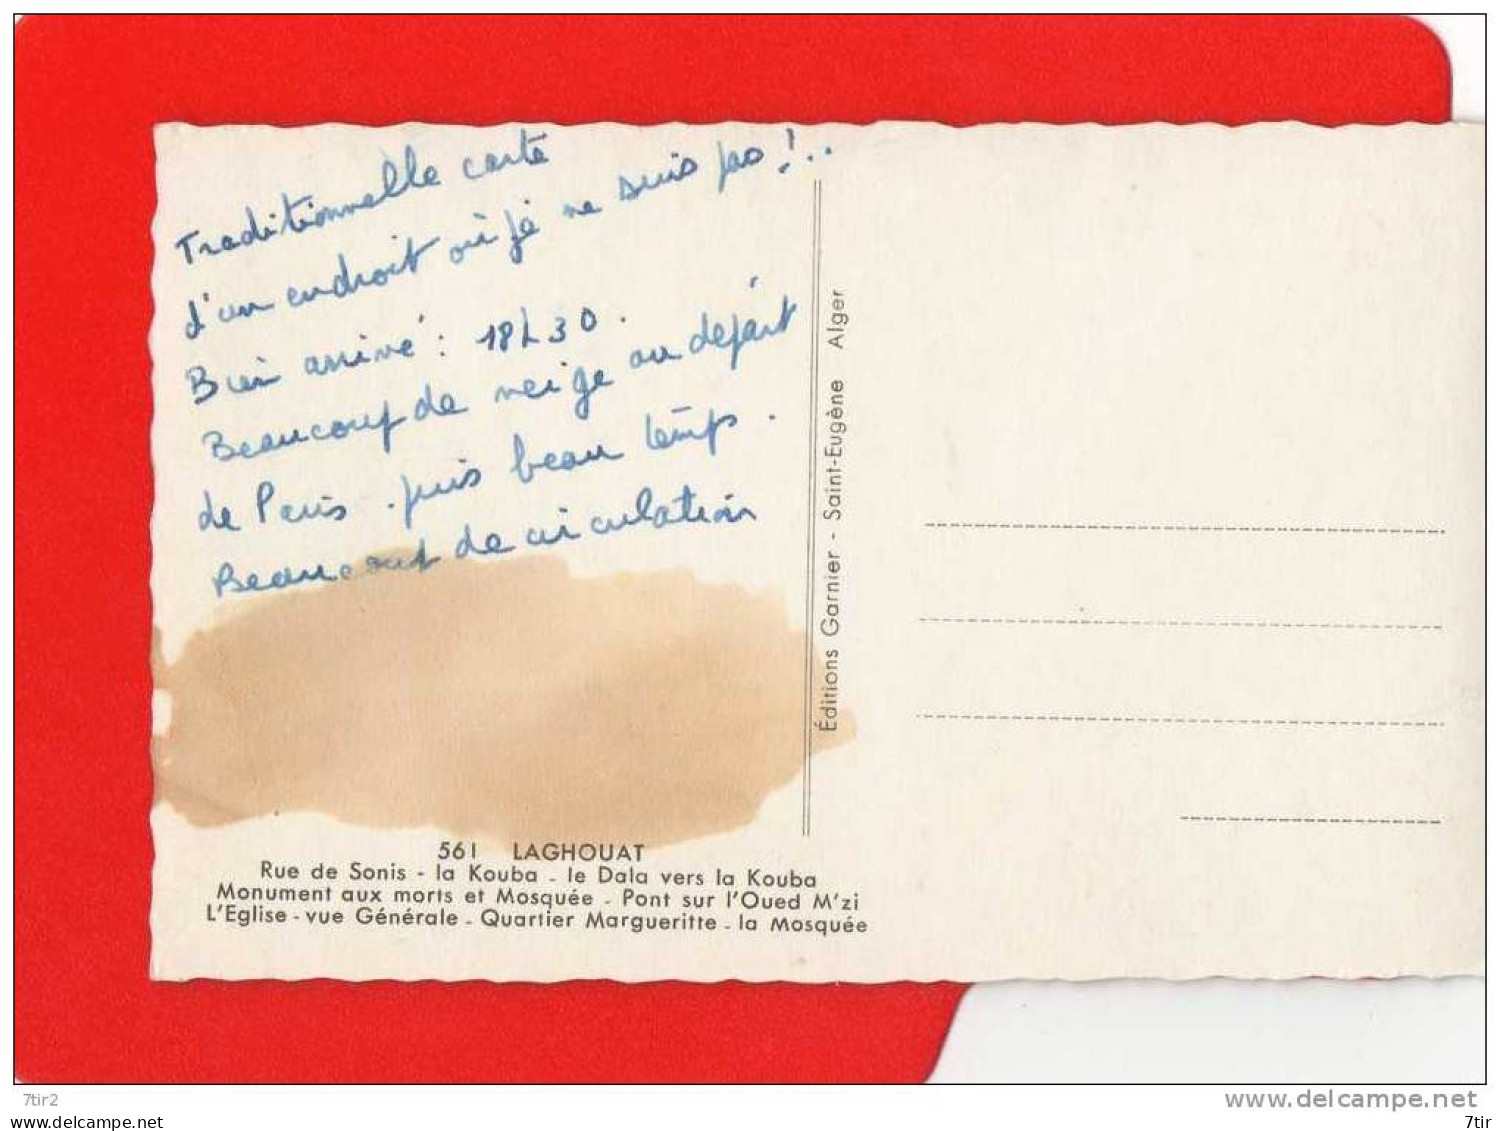 Traditionnelle carte
d'un endroit où je ne suis pas !..
Bien arrivé : 18h30.
Beaucoup de neige au départ
de Paris. puis beau temps.
Beaucoup de circulation
Éditions Garnier - Saint-Eugène Alger
561 LAGHOUAT
Rue de Sonis - la Kouba - le Dala vers la Kouba
Monument aux morts et Mosquée - Pont sur l'Oued M'zi
L'Eglise - vue Générale - Quartier Margueritte - la Mosquée
7tir2
www.delcampe.net
www.delcampe.net
7tir